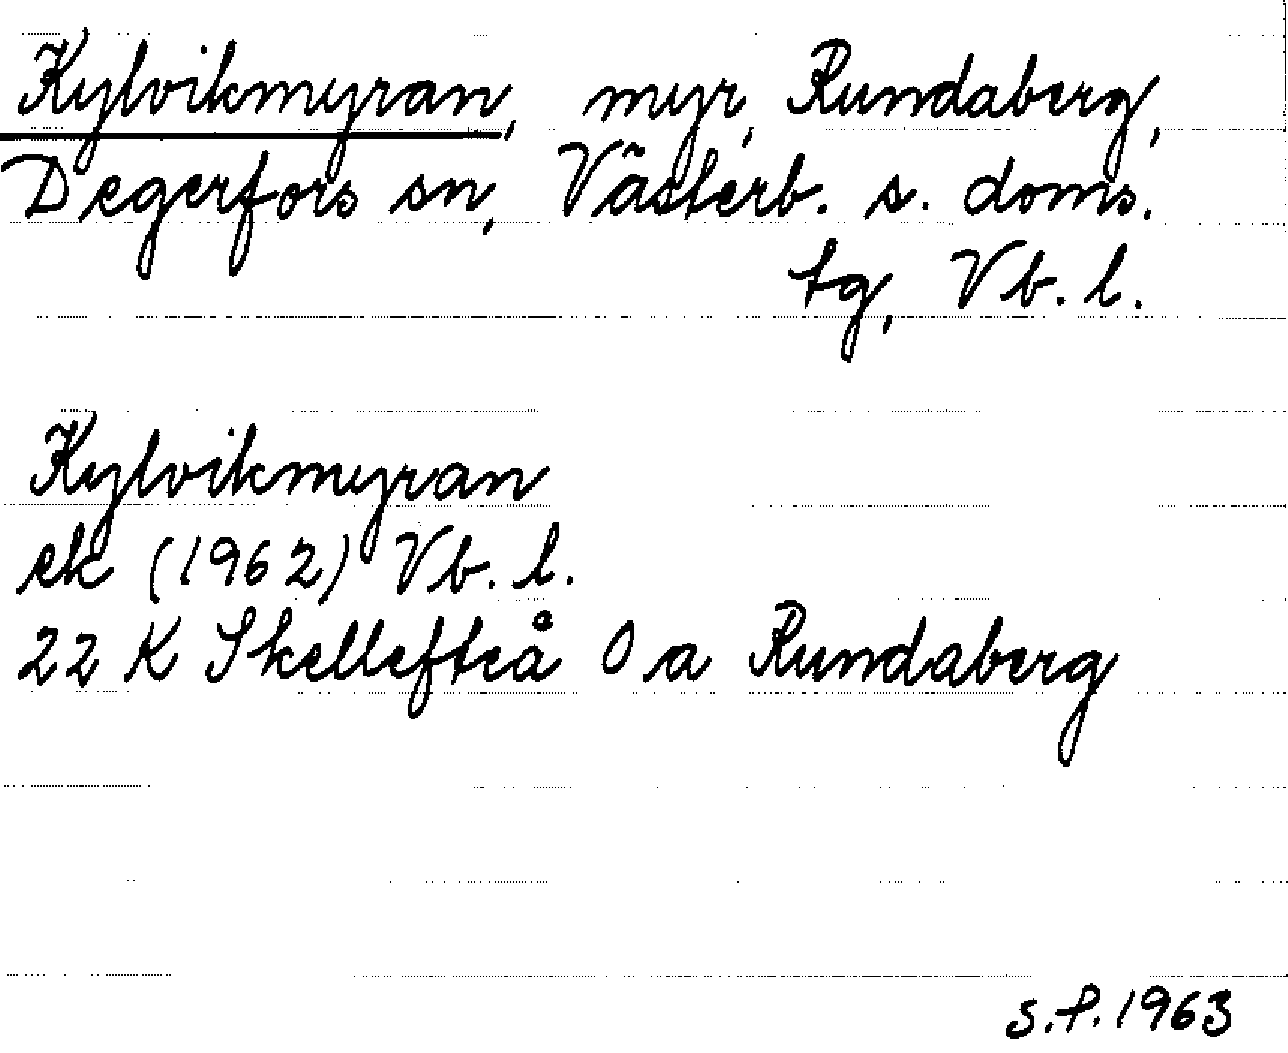 Kylvikmyran, myr, Rundaberg,
Degerfors sn, Västerb. s. doms.
tg, Vb. l.
Kylvikmyran
ek (1962) Vb. l.
22 K Skellefteå 0 a Rundaberg
S.P. 1963